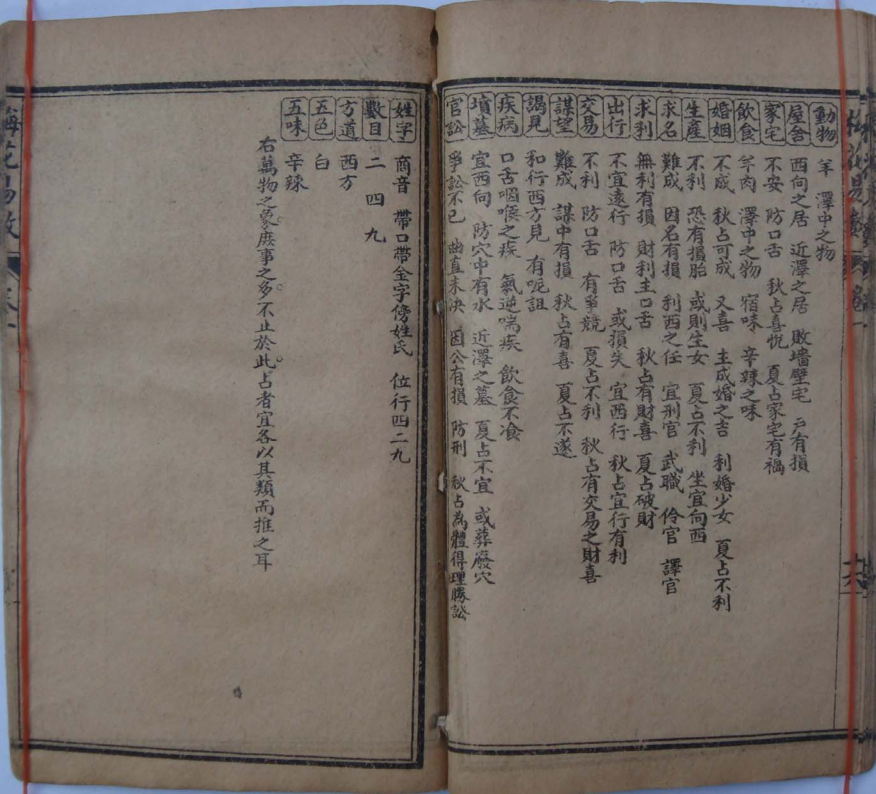 動物 羊 澤中之物
屋舍 西向之居 近澤之居 敗墻壁宅 戶有損
家宅 不安 防口舌 秋占喜悅 夏占家宅有禍
飲食 羊肉 澤中之物 宿味 辛辣之味
婚姻 不成 秋占可成 又喜 主成婚之吉 利婚少女 夏占不利
生產 不利 恐有損胎 或則生女 夏占不利 坐宜向西
求名 難成 因名有損 利西之任 宜刑官 武職 伶官 譯官
求利 無利有損 財利主口舌 秋占有財喜 夏占破財
出行 不宜遠行 防口舌 或損失 宜西行 秋占宜行有利
交易 不利 防口舌 有爭競 夏占不利 秋占有交易之財喜
謀望 難成 謀中有損 秋占有喜 夏占不遂
謁見 和行西方見 有呪詛
疾病 口舌咽喉之疾 氣逆喘疾 飲食不飡
墳墓 宜西向 防穴中有水 近澤之墓 夏占不宜 或葬廢穴
官訟 爭訟不已 曲直未決 因公有損 防刑 秋占為體得理勝訟
姓字 商音 帶口帶金字傍姓氏 位行四二九
數目 二 四 九
方道 西方
五色 白
五味 辛辣
右萬物之象庶事之多不止於此占者宜各以其類而推之耳
梅花易數